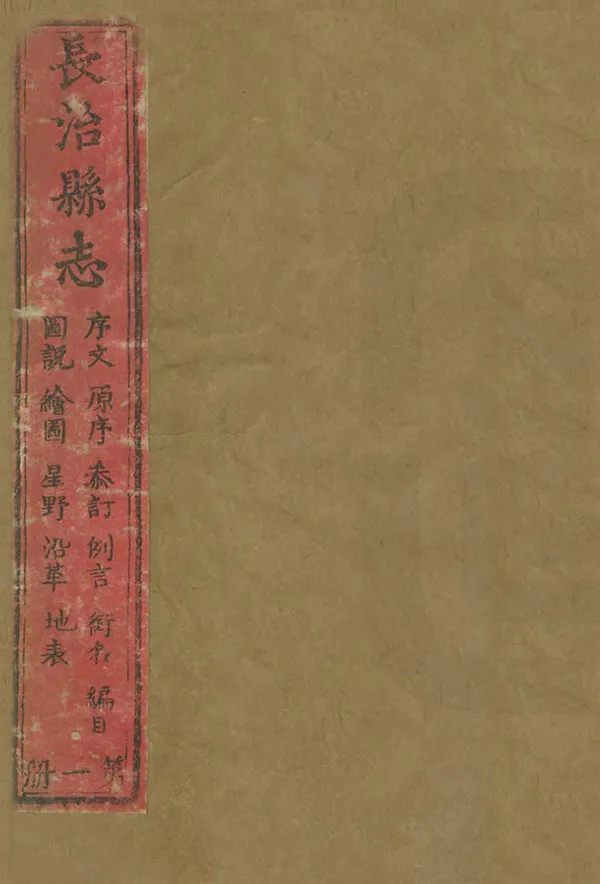 長治縣志
序文 原序 叅訂 例言 銜名 編目
圖説 繪圖 星野 沿革 地表
第一冊